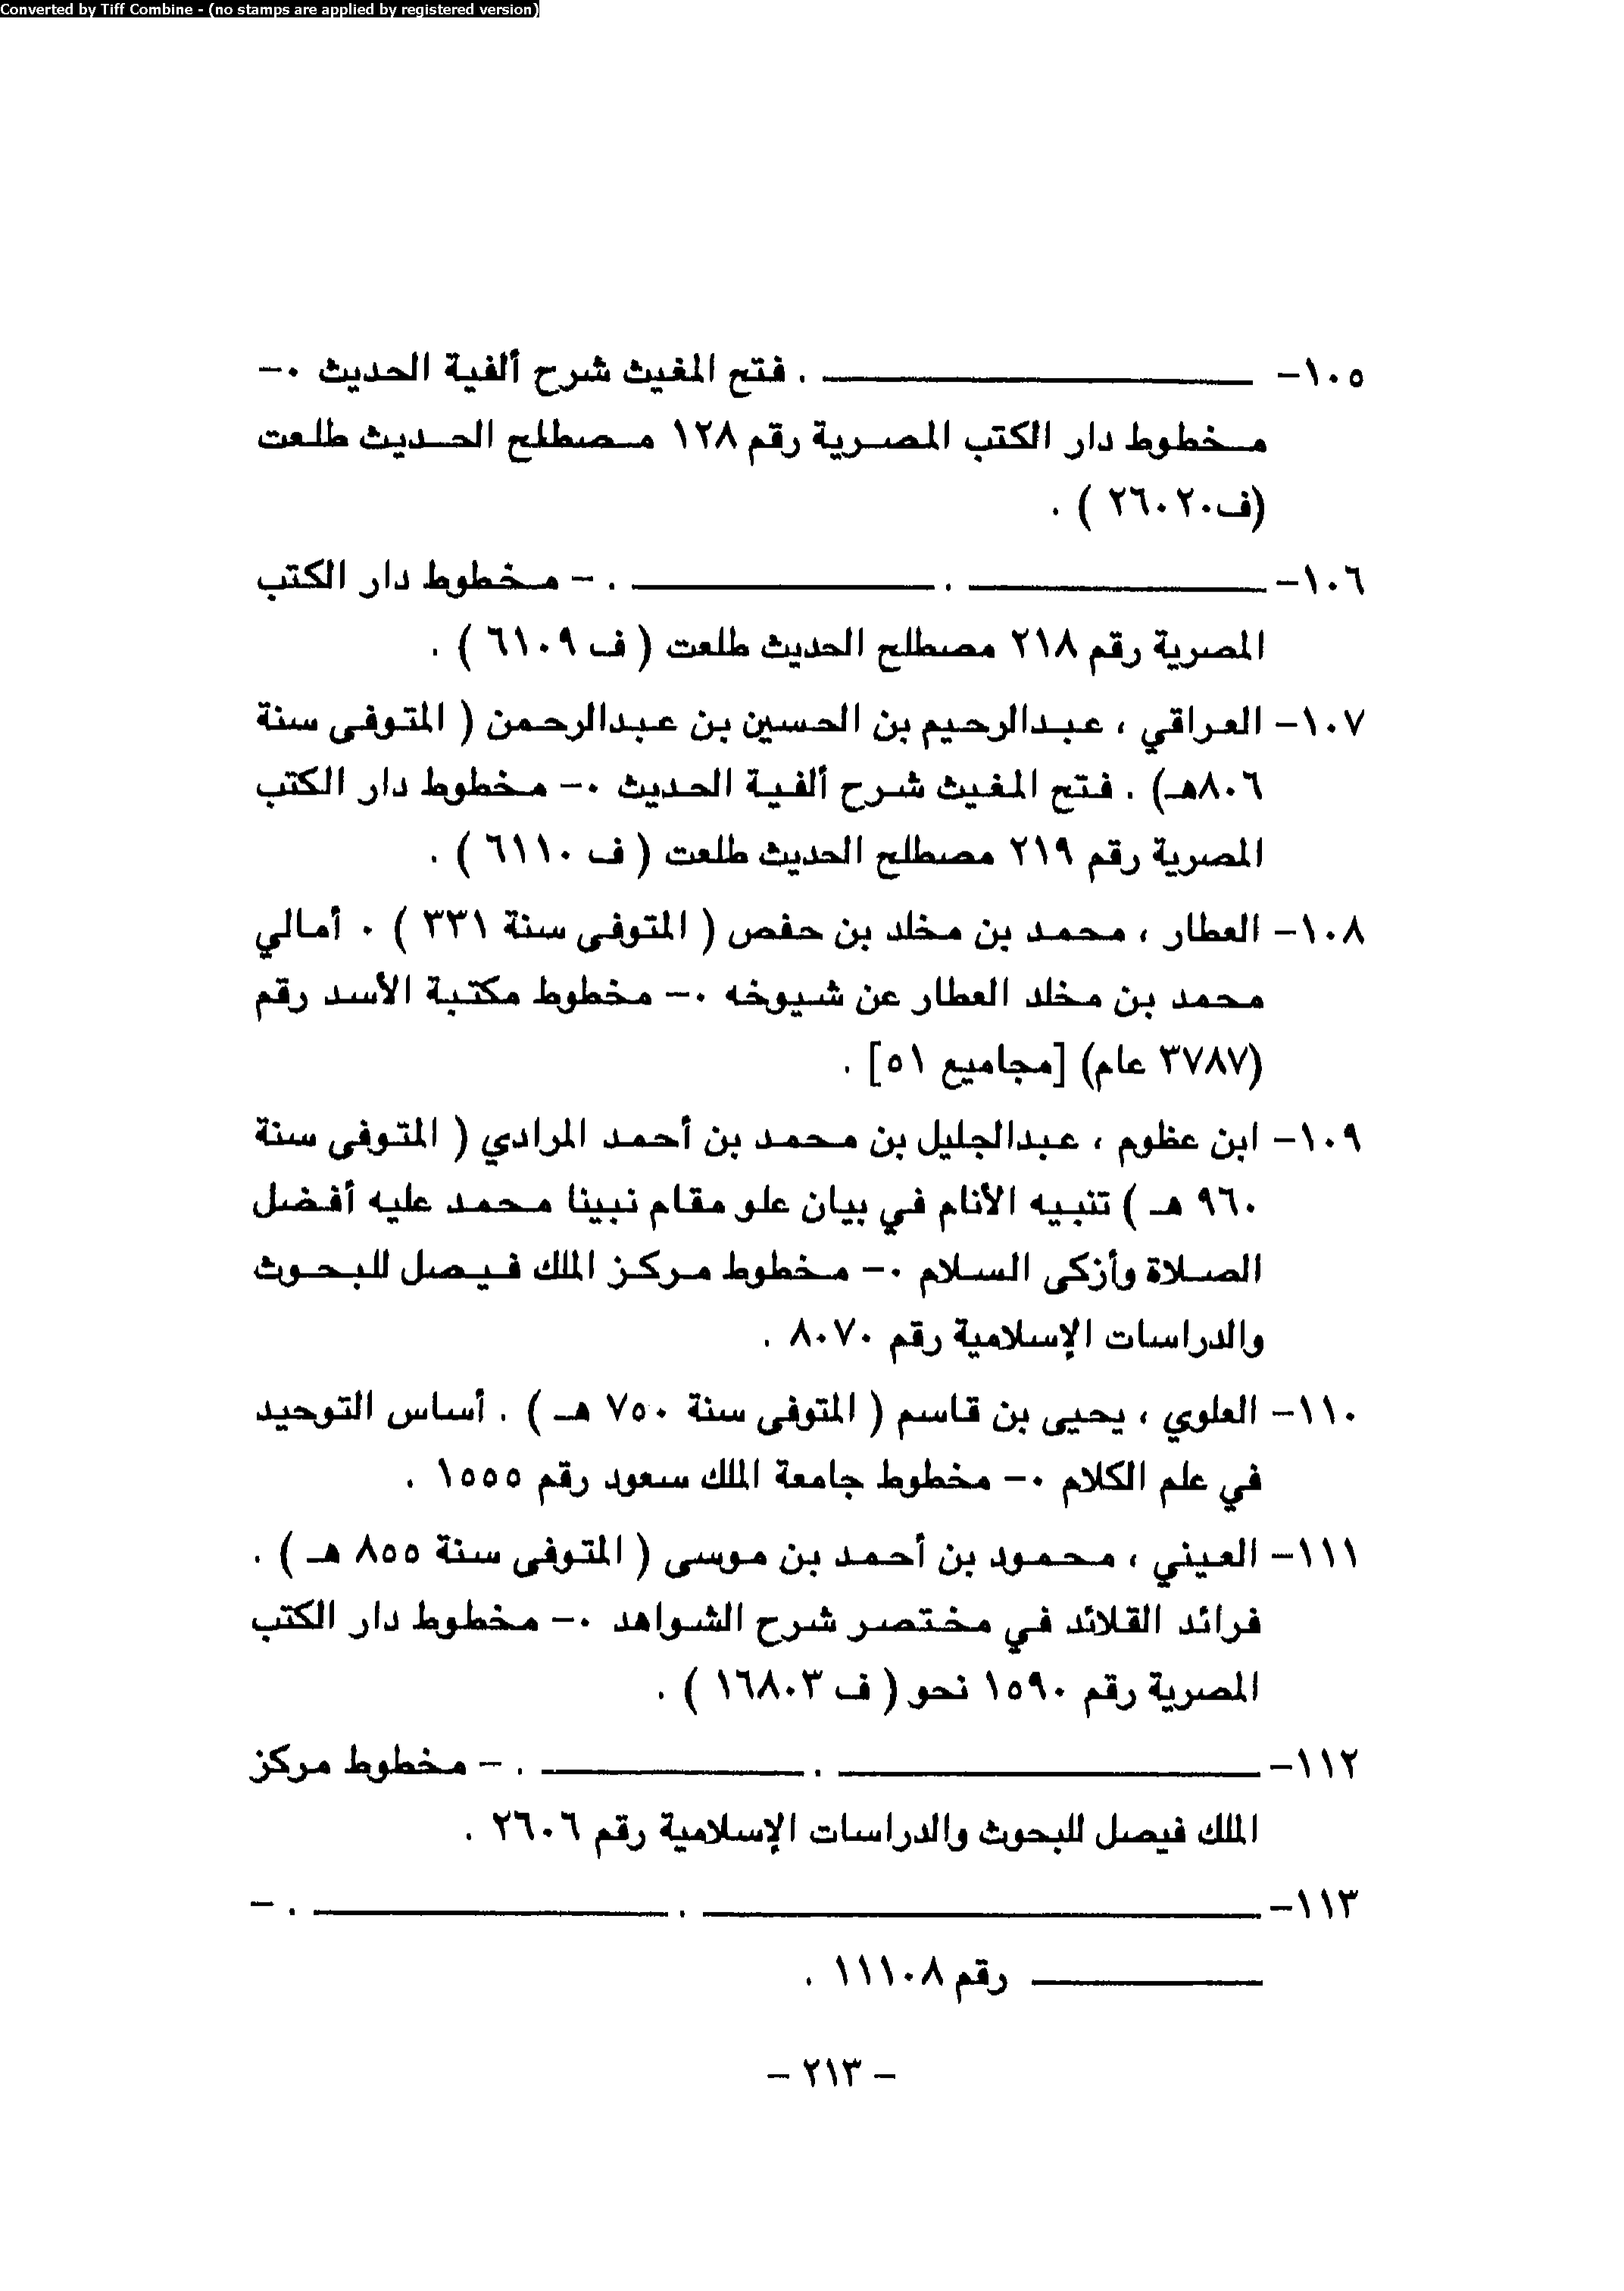 Converted by Tiff Combine - (no stamps are applied by registered version)
١٠٥- ــــــــــــــــــــ . فتح المغيث شرح ألفية الحديث ٠-
مخطوط دار الكتب المصرية رقم ١٢٨ مصطلح الحديث طلعت
(ف٢٦٠٢٠ ) .
١٠٦- ــــــــــــــــــــ . ــــــــــــــــــــ . - مخطوط دار الكتب
المصرية رقم ٢١٨ مصطلح الحديث طلعت ( ف ٦١٠٩ ) .
١٠٧- العراقي ، عبدالرحيم بن الحسين بن عبدالرحمن ( المتوفى سنة
٨٠٦هـ) . فتح المغيث شرح ألفية الحديث ٠- مخطوط دار الكتب
المصرية رقم ٢١٩ مصطلح الحديث طلعت ( ف ٦١١٠ ) .
١٠٨- العطار ، محمد بن مخلد بن حفص ( المتوفى سنة ٣٣١ ) ٠ أمالي
محمد بن مخلد العطار عن شيوخه ٠- مخطوط مكتبة الأسد رقم
(٣٧٨٧ عام) [مجاميع ٥١] .
١٠٩- ابن عظوم ، عبدالجليل بن محمد بن أحمد المرادي ( المتوفى سنة
٩٦٠ هـ ) تنبيه الأنام في بيان علو مقام نبينا محمد عليه أفضل
الصلاة وأزكى السلام ٠- مخطوط مركز الملك فيصل للبحوث
والدراسات الإسلامية رقم ٨٠٧٠ .
١١٠- العلوي ، يحيى بن قاسم ( المتوفى سنة ٧٥٠ هـ ) . أساس التوحيد
في علم الكلام ٠- مخطوط جامعة الملك سعود رقم ١٥٥٥ .
١١١- العيني ، محمود بن أحمد بن موسى ( المتوفى سنة ٨٥٥ هـ ) .
فرائد القلائد في مختصر شرح الشواهد ٠- مخطوط دار الكتب
المصرية رقم ١٥٩٠ نحو ( ف ١٦٨٠٣ ) .
١١٢- ــــــــــــــــــــ . ــــــــــــــــــــ . - مخطوط مركز
الملك فيصل للبحوث والدراسات الإسلامية رقم ٢٦٠٦ .
١١٣- ــــــــــــــــــــ . ــــــــــــــــــــ . -
ــــــــــــــــــــ رقم ١١١٠٨ .
- ٢١٣ -